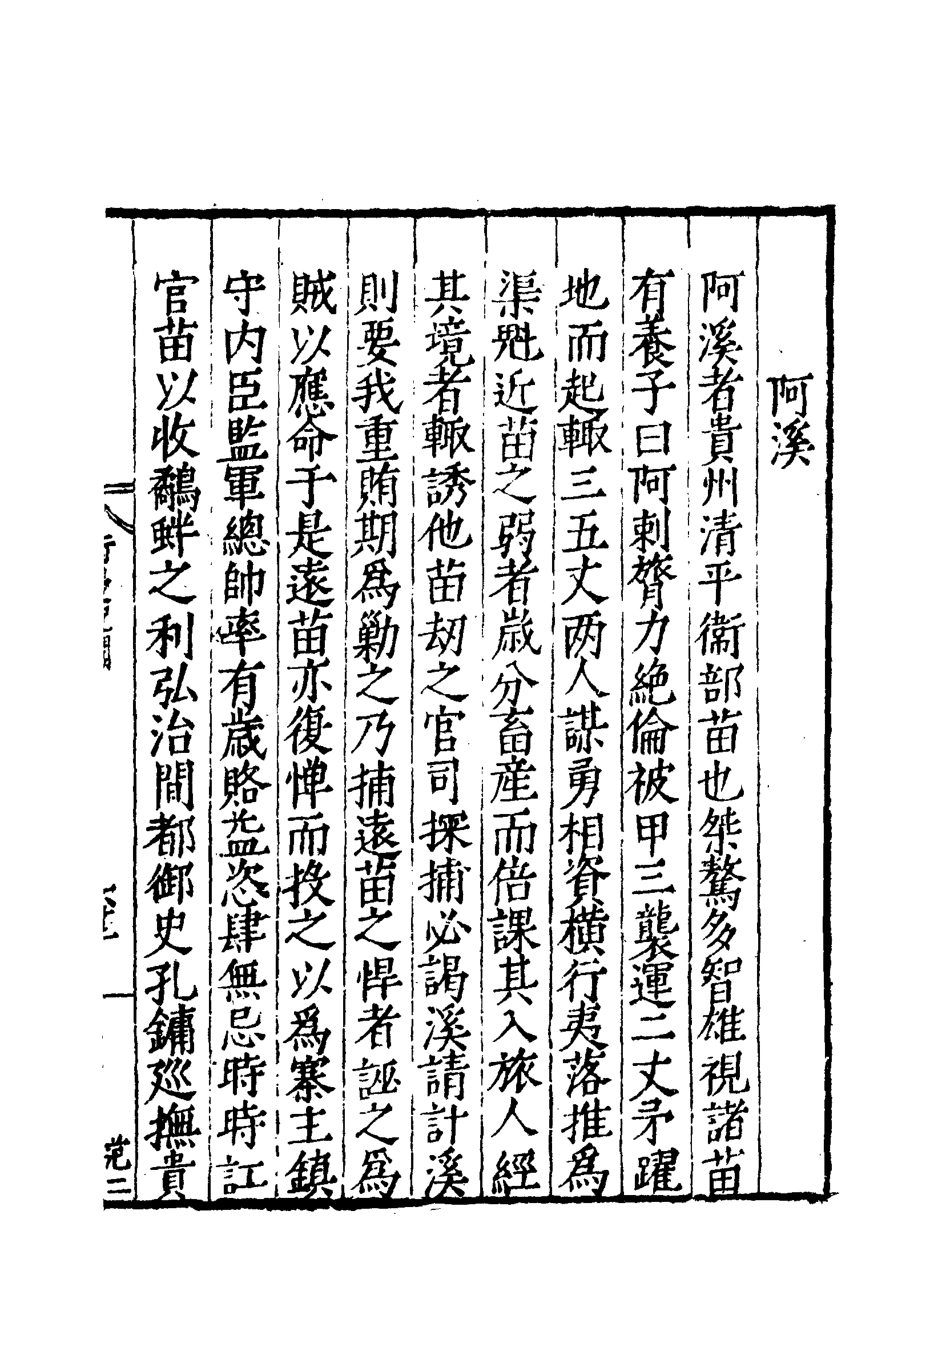 阿溪
阿溪者貴州清平衞部苗也桀驁多智雄視諸苗
有養子曰阿剌膂力絶倫被甲三襲運二丈矛躍
地而起輙三五丈两人謀勇相資横行夷落推爲
渠魁近苗之弱者歳分畜産而倍課其入旅人經
其境者輙誘他苗刼之官司探捕必謁溪請計溪
則要我重賄期爲勦之乃捕遠苗之悍者誣之爲
賊以應命于是遠苗亦復憚而投之以爲寨主鎮
守内臣監軍總帥率有歳賂益恣肆無忌時時訌
官苗以收鷸蚌之利弘治間都御史孔鏞廵撫貴